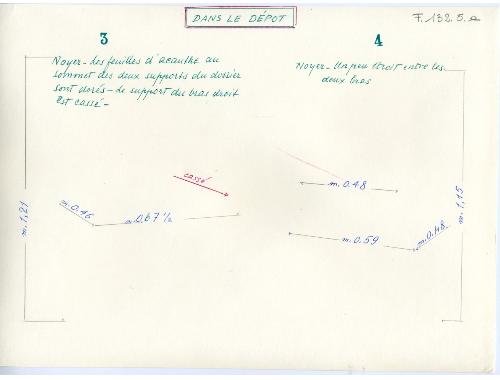 DANS LE DÉPÔT
F. 132.5.a
3
Noyer - Les feuilles d'acanthe au
sommet des deux supports du dossier
sont dorés - Le support du bras droit
Est cassé -
4
Noyer - Un peu étroit entre les
deux bras
cassé
m. 0.48
m. 1,21
m. 0.46
m. 0.67 1/2
m. 0.59
m. 0.48
m. 1,15